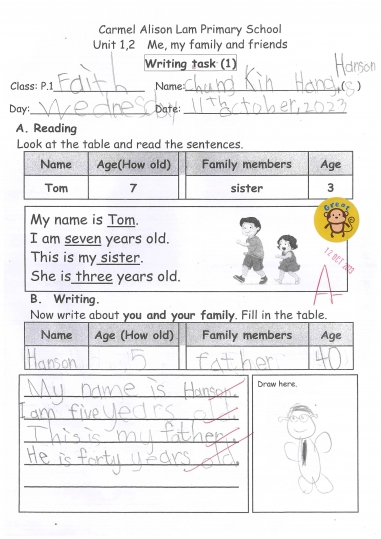 Carmel Alison Lam Primary School
Unit 1,2 Me, my family and friends
Writing task (1)
Hanson
Class: P.1 Faith Name: Chung Kin Hang ( )
Day: Wednesday Date: 11th October, 2023
A. Reading
Look at the table and read the sentences.
Name Age(How old) Family members Age
Tom 7 sister 3
My name is Tom.
I am seven years old.
This is my sister.
She is three years old.
Great
12 OCT 2023
A
B. Writing.
Now write about you and your family. Fill in the table.
Name Age (How old) Family members Age
Hanson 5 father 40
My name is Hanson.
I am five years old.
This is my father.
He is forty years old.
Draw here.